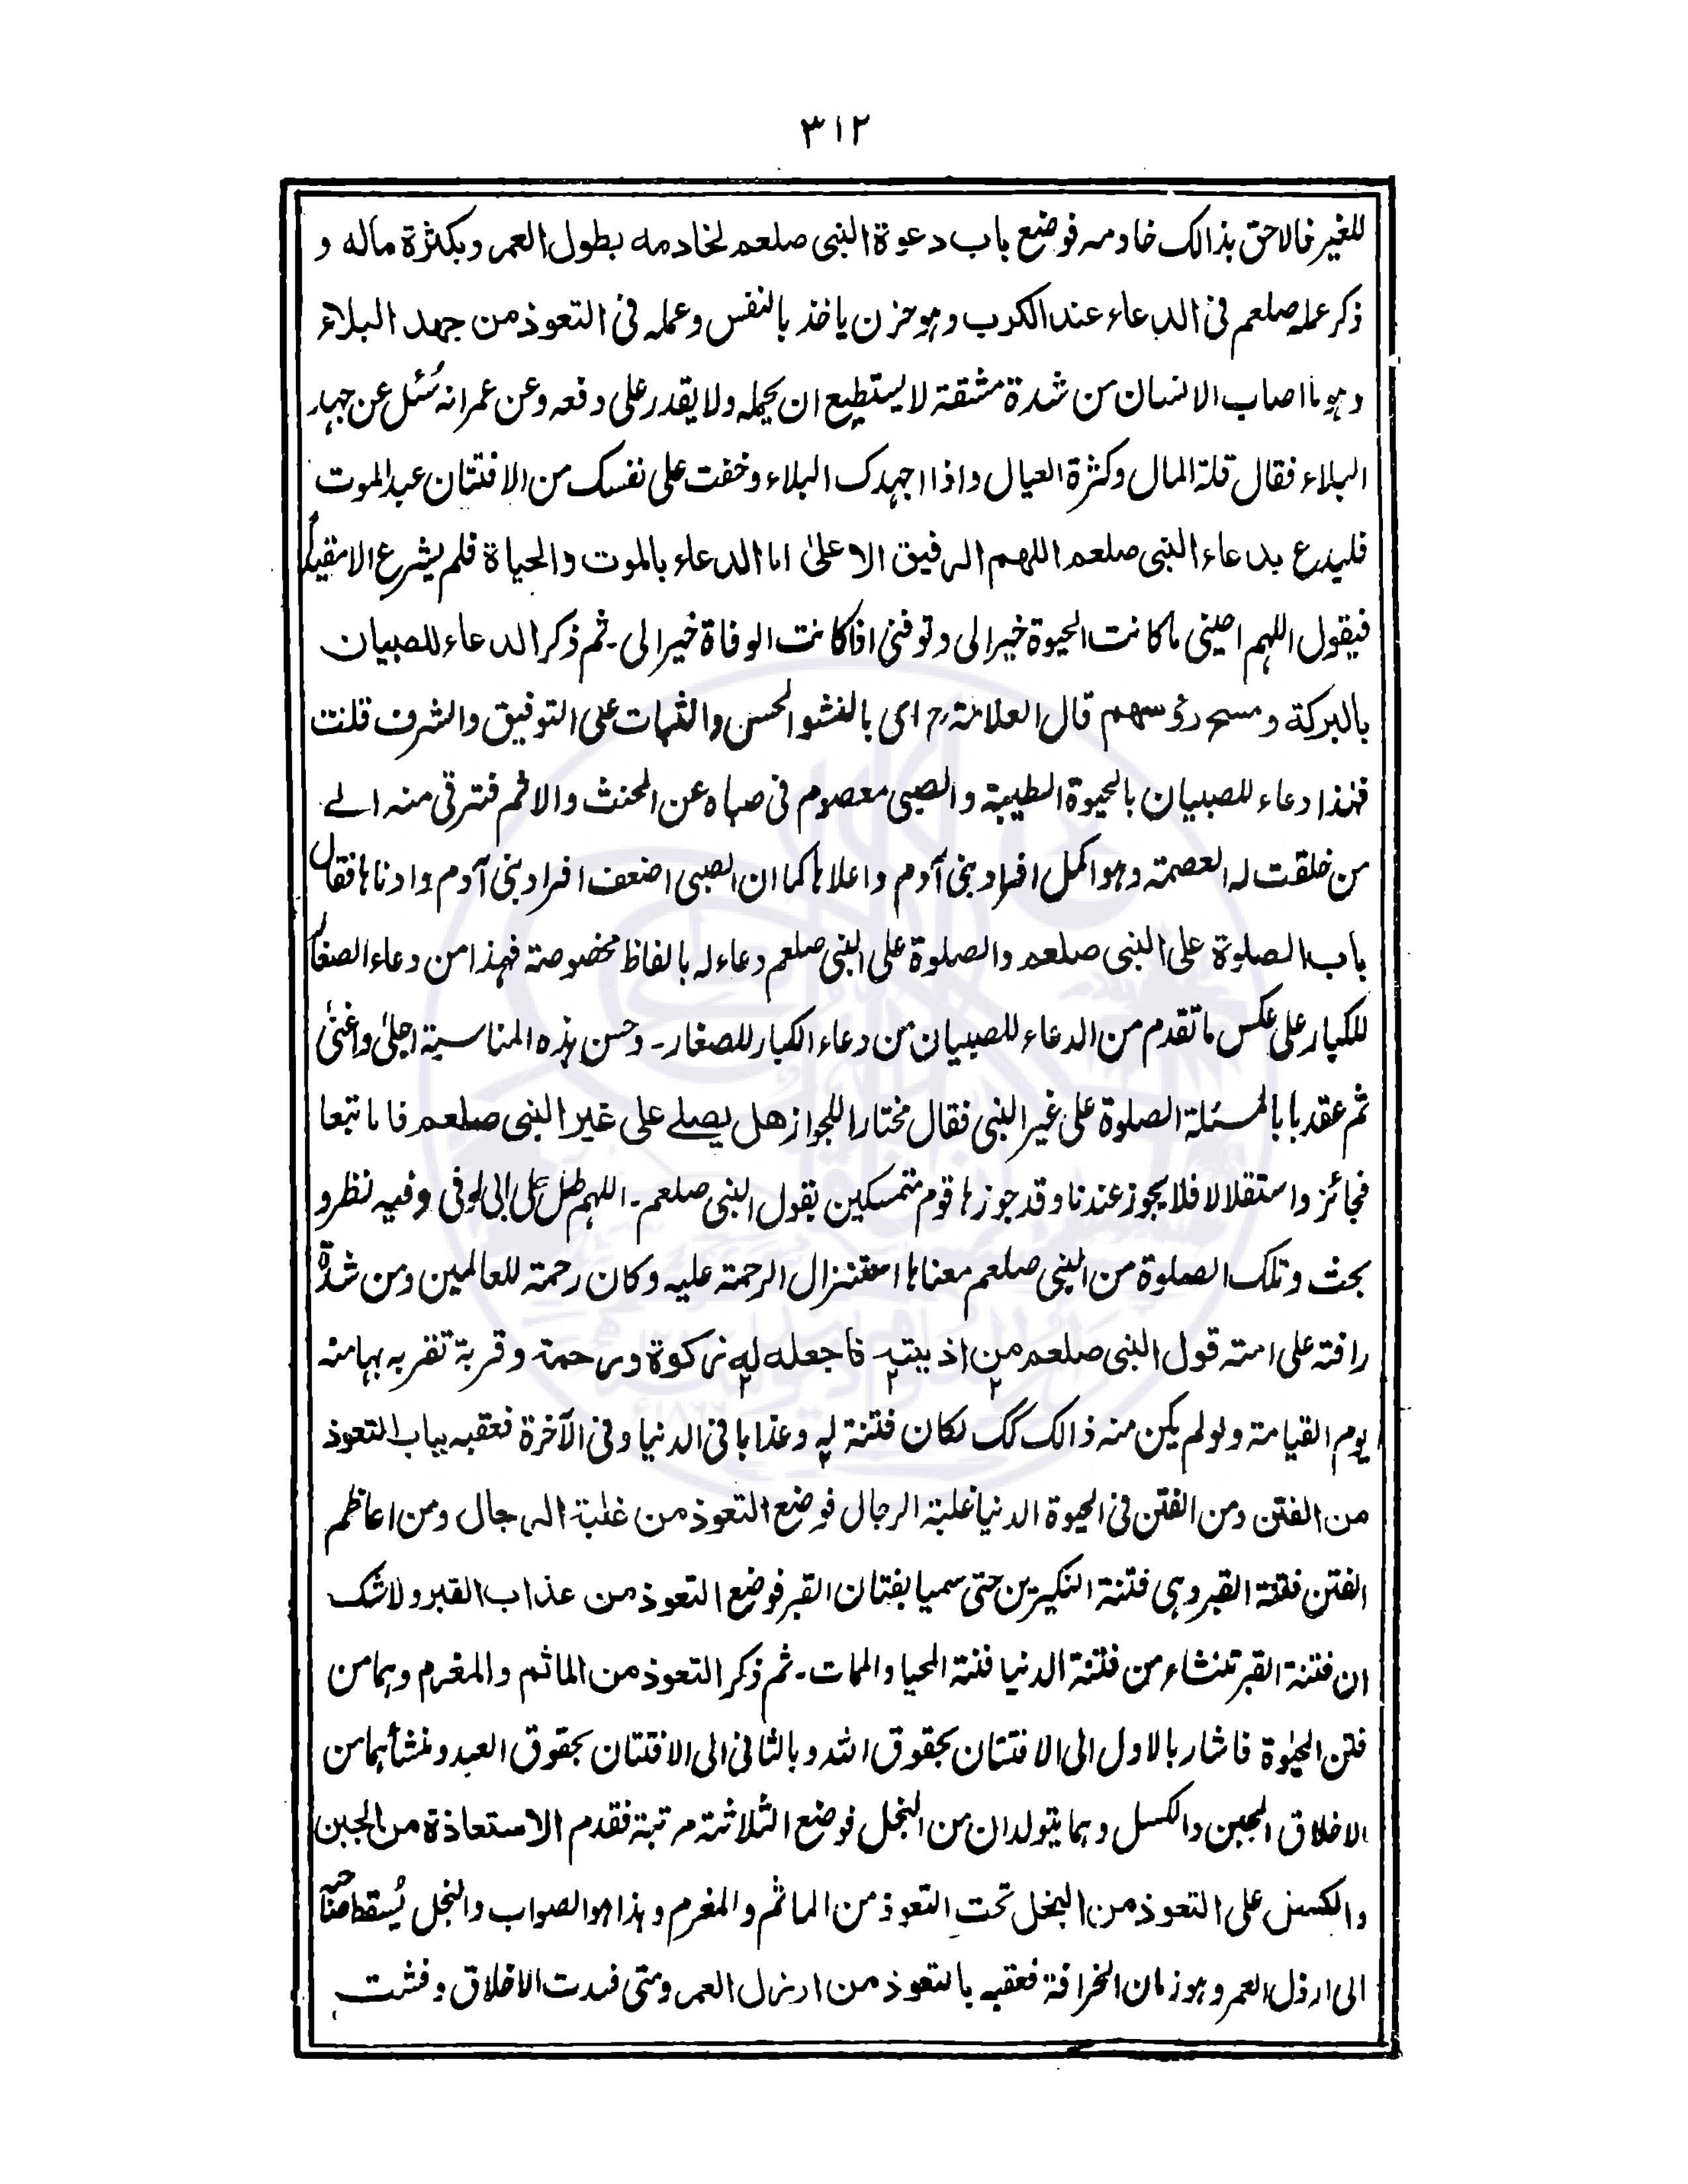 ٣١٢
للغير فالاحق بذالك خادمه فوضع باب دعوة النبى صلعم لخادمه بطول العمر وبكثرة ماله و
ذكر عمله صلعم فى الدعاء عند الكرب وهو حزن ياخذ بالنفس وعمله فى التعوذ من جهد البلاء
وهو ما اصاب الانسان من شدة مشقة لا يستطيع ان يحمله ولا يقدر على دفعه وعن عمر انه سُئل عن جهد
البلاء فقال قلة المال وكثرة العيال واذا اجهدك البلاء وخفت على نفسك من الافتتان عبد الموت
فليدع بدعاء النبى صلعم اللهم الرفيق الاعلىٰ اما الدعاء بالموت والحياة فلم يشرع الا مقيدًا
فيقول اللهم احينى ما كانت الحيوة خيرا لى وتوفنى اذا كانت الوفاة خيرا لى ۔ ثم ذكر الدعاء للصبيان
بالبركة ومسح رؤسهم قال العلامة رح اى بالنشو الحسن والثبات على التوفيق والشرف قلت
فهذا دعاء للصبيان بالحيوة الطيبة والصبى معصوم فى صباه عن الحنث والاثم فترقى منه الے
من خلقت له العصمة وهو اكمل افراد بنى آدم واعلاها كما ان الصبى اضعف افراد بنى آدم وادناها فقال
باب الصلوة على النبى صلعم والصلوة على النبى صلعم دعاء له بالفاظ مخصوصة فهذا من دعاء الصغار
للكبار على عكس ما تقدم من الدعاء للصبيان من دعاء الكبار للصغار ۔ وحسن هذه المناسبة اجلىٰ واغنىٰ
ثم عقد بابا لمسئلة الصلوة على غير النبى فقال مختارا للجواز هل يصلے على غير النبى صلعم فاما تبعا
فجائز واستقلالا فلا يجوز عندنا وقد جوزها قوم متمسكين بقول النبى صلعم ۔ اللهم صل على ابى اوفى وفيه نظر و
بحث وتلك الصلوة من النبى صلعم معناها استنزال الرحمة عليه وكان رحمة للعالمين ومن شدّة
رافته على امته قول النبى صلعم من اذيته فاجعله له زكوة ورحمة وقربة تقربه بها منه
يوم القيامة ولو لم يكن منه ذالك لكان فتنة له وعذابا فى الدنيا وفى الآخرة فعقبه بباب التعوذ
من الفتن ومن الفتن فى الحيوة الدنيا غلبة الرجال فوضع التعوذ من غلبة الرجال ومن اعاظم
الفتن فتنة القبر وهى فتنة النكيرين حتى سميا بفتان القبر فوضع التعوذ من عذاب القبر ولا شك
ان فتنة القبر تنشاء من فتنة الدنيا فتنة المحيا والممات ۔ ثم ذكر التعوذ من الماثم والمغرم وهما من
فتن الحيٰوة فاشار بالاول الى الافتتان بحقوق الله وبالثانى الى الافتتان بحقوق العبد ومنشأهما من
الاخلاق الجبن والكسل وهما يتولدان من البخل فوضع الثلاثة مرتبة فقدم الاستعاذة من الجبن
والكسل على التعوذ من البخل تحت التعوذ من الماثم والمغرم وهذا هو الصواب والبخل يُسقط صاحبه
الى ارذل العمر وهو زمان الخرافة فعقبه بالتعوذ من ارذل العمر ومتى فسدت الاخلاق وفشت